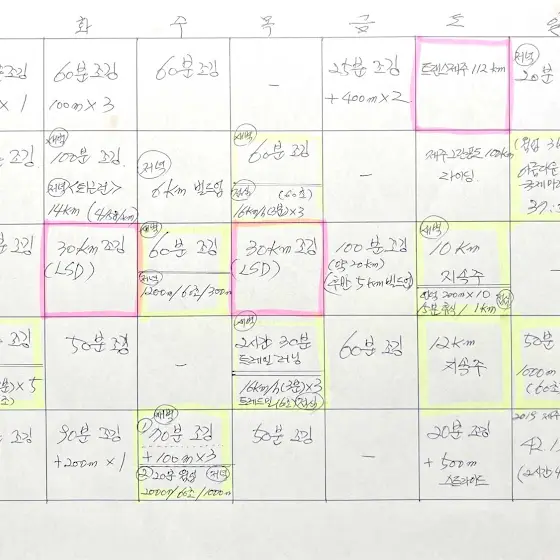 화 수 목 금 토 일
조깅
× 1
60분 조깅
100m × 3
60분 조깅
–
25분 조깅
+ 400m × 2
트랜스제주 112km
저녁
20분
새벽
100분 조깅.
저녁 <퇴근런>
14km
저녁
6km 빌드업
새벽
60분 조깅
점심 (60초)
16km/h(3분)×3
–
제주 그란폰도 100km
라이딩
아름다운
국제마라
30km 조깅
(LSD)
새벽
60분 조깅
저녁
1200m/60초/300m
30km 조깅
(LSD)
100분 조깅
(약 20km)
(후반 5km 빌드업)
새벽
10km
지속주
200m × 10
5분 휴식 / 1km
조깅
× 5
50분 조깅
–
새벽
2시간 30분
트레일 러닝
16km/h(3분)×3
트레드밀(60초)
60분 조깅
12km
지속주
50분
1000m
(60초
조깅
90분 조깅
+ 200m × 1
새벽
① 70분 조깅
+ 100m × 3
② 20분 웜업 저녁
2000m/60초/1000m
50분 조깅
–
20분 조깅
+ 500m
스트라이드
2019 제주
42.1
(2시간